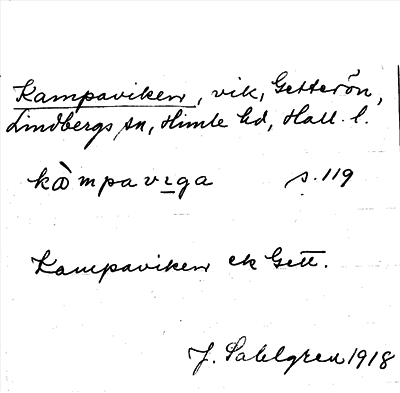 Kampaviken, vik, Getterön,
Lindbergs sn, Himle hd, Hall. l.
kàmpavıga s. 119
Kampaviken ek Gett.
J. Sahlgren 1918